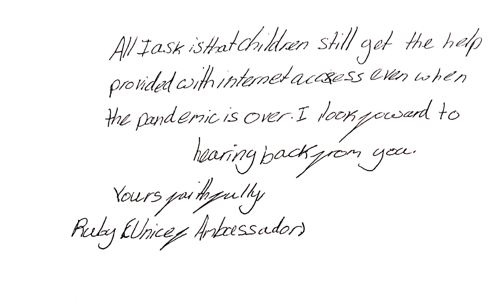 All I ask is that children still get the help
provided with internet access even when
the pandemic is over. I look foward to
hearing back from you.
Yours faithfully
Ruby (Unicef Ambassador)